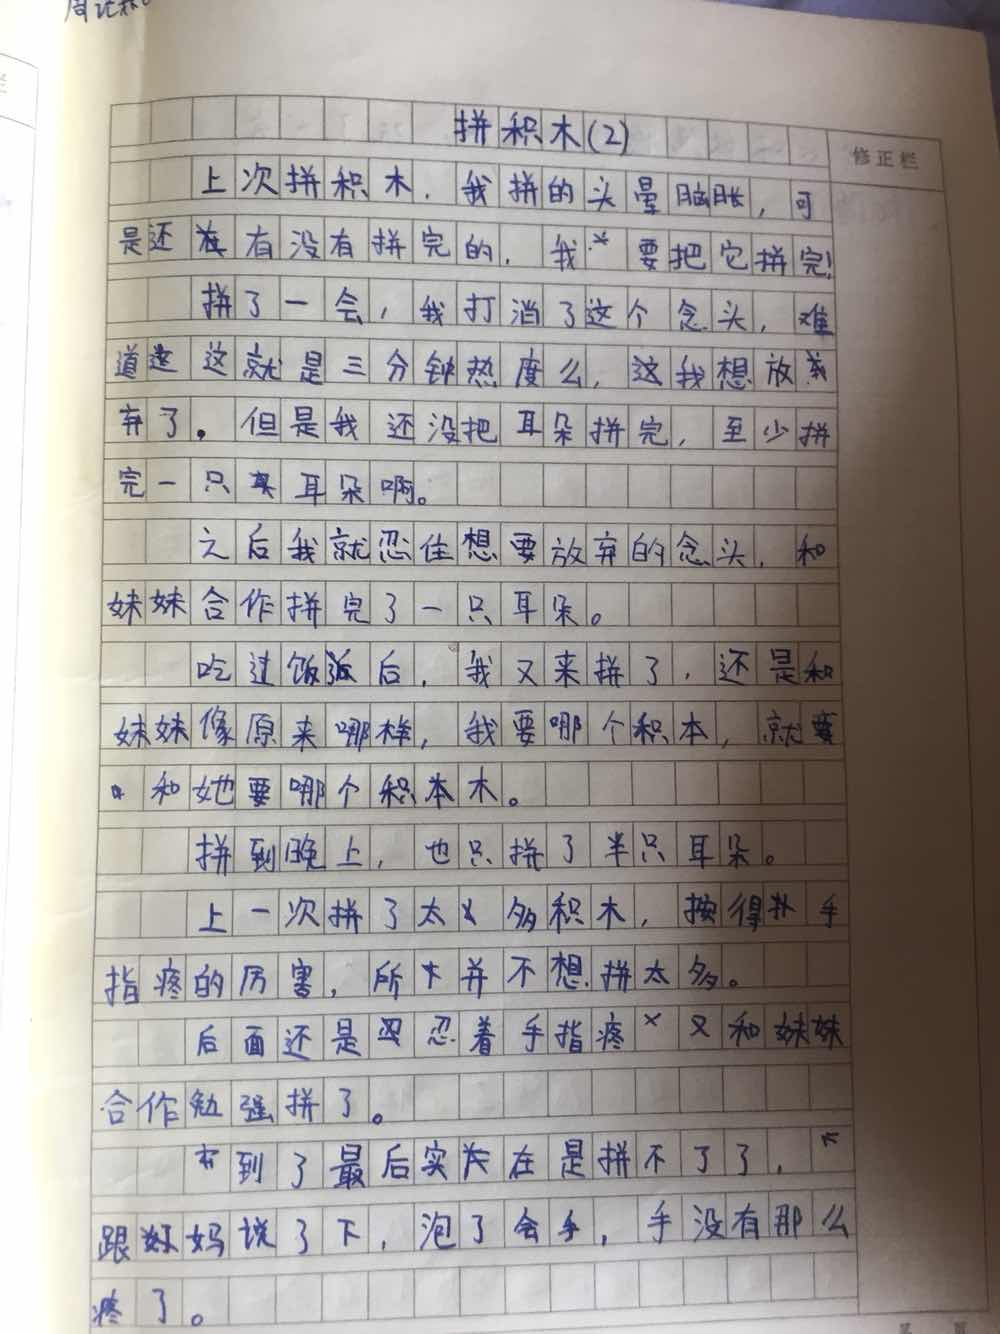 周记
拼积木(2)
修正栏
上次拼积木，我拼的头晕脑胀，可
是还有没有拼完的，我要把它拼完！
拼了一会，我打消了这个念头，难
道这就是三分钟热度么，这我想放
弃了。但是我还没把耳朵拼完，至少拼
完一只耳朵啊。
之后我就忍住想要放弃的念头，和
妹妹合作拼完了一只耳朵。
吃过饭后，我又来拼了，还是和
妹妹像原来哪样，我要哪个积本，就要
和她要哪个积木。
拼到晚上，也只拼了半只耳朵。
上一次拼了太多积木，按得手
指疼的厉害，所并不想拼太多。
后面还是忍着手指疼又和妹妹
合作勉强拼了。
到了最后实在是拼不了了，
跟妈说了下，泡了会手，手没有那么
疼了。